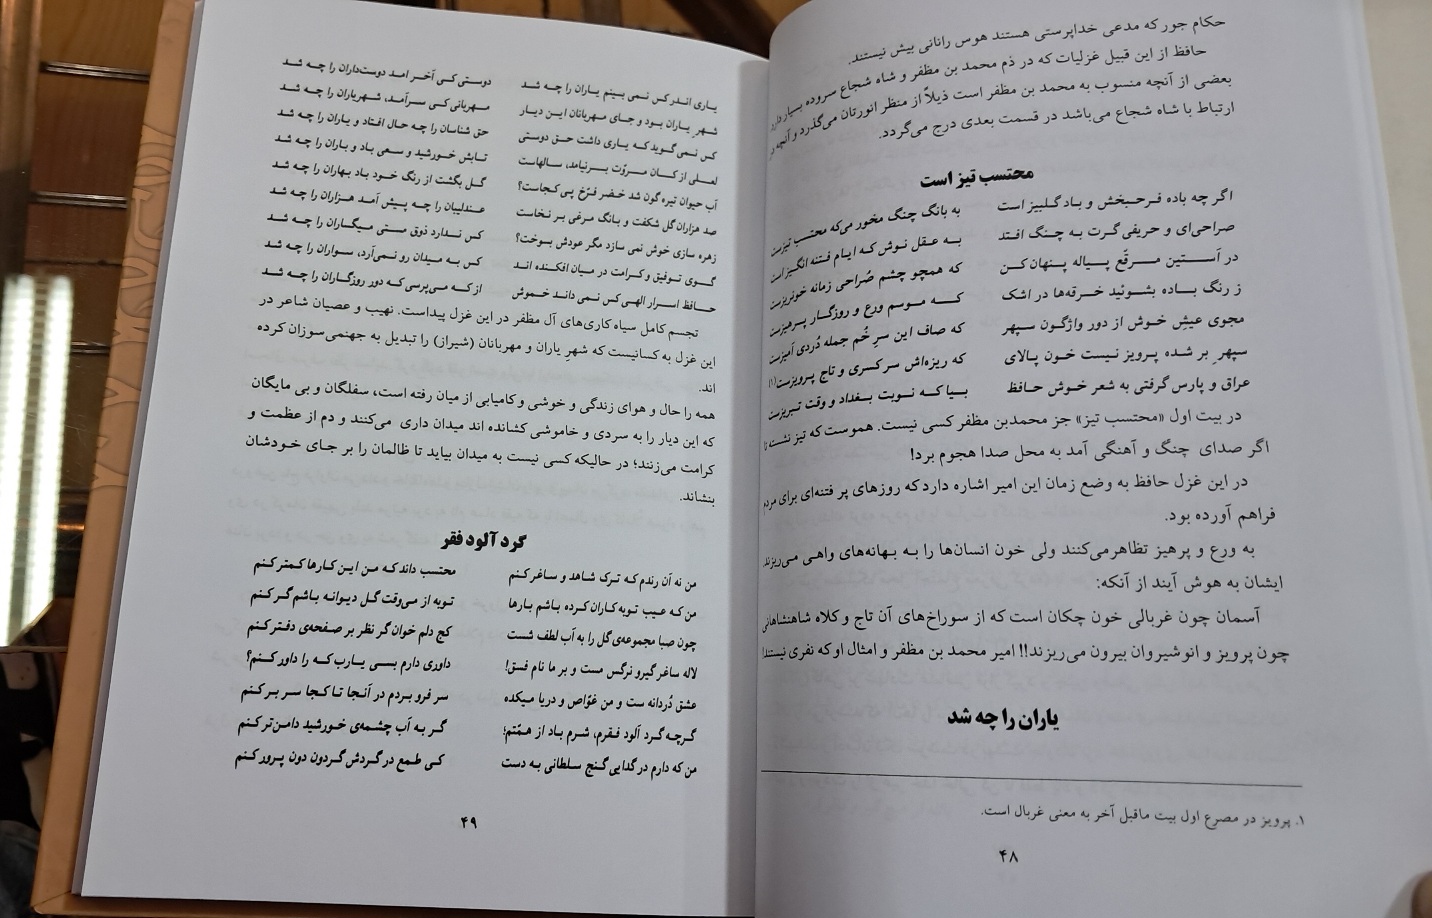 حکام جور که مدعی خداپرستی هستند هوس رانانی بیش نیستند.
حافظ از این قبیل غزلیات که در ذم محمد بن مظفر و شاه شجاع سروده بسیار دارد
بعضی از آنچه منسوب به محمد بن مظفر است ذیلاً از منظر انورتان می‌گذرد و آنچه در
ارتباط با شاه شجاع می‌باشد در قسمت بعدی درج می‌گردد.
محتسب تیز است
اگر چه باده فرحبخش و باد گلبیز است به بانگ چنگ مخور می‌که محتسب تیزست
صراحی‌ای و حریفی گرت به چنگ افتد به عقل نوش که ایام فتنه انگیز است
در آستین مرقّع پیاله پنهان کن که همچو چشم صُراحی زمانه خونریزست
ز رنگ باده بشوئید خرقه‌ها در اشک که موسم ورع و روزگار پرهیزست
مجوی عیشِ خوش از دور واژگون سپهر که صاف این سرِ خُم جمله دُردی آمیزست
سپهرِ بر شده پرویز نیست خون پالای که ریزه‌اش سر کسری و تاج پرویزست(۱)
عراق و پارس گرفتی به شعر خوش حافظ بیا که نوبت بغداد و وقت تبریزست
در بیت اول «محتسب تیز» جز محمدبن مظفر کسی نیست. هموست که تیز نشسته تا
اگر صدای چنگ و آهنگی آمد به محل صدا هجوم برد!
در این غزل حافظ به وضع زمان این امیر اشاره دارد که روزهای پر فتنه‌ای برای مردم
فراهم آورده بود.
به ورع و پرهیز تظاهر می‌کنند ولی خون انسان‌ها را به بهانه‌های واهی می‌ریزند
ایشان به هوش آیند از آنکه:
آسمان چون غربالی خون چکان است که از سوراخ‌های آن تاج و کلاه شاهنشاهانی
چون پرویز و انوشیروان بیرون می‌ریزند!! امیر محمد بن مظفر و امثال او که نفری نیستند!
یاران را چه شد
۱. پرویز در مصرع اول بیت ماقبل آخر به معنی غربال است.
۴۸
یاری اندر کس نمی بینم یاران را چه شد دوستی کی آخر امد دوست‌داران را چه شد
شهرِ یاران بود و جای مهربانان این دیار مهربانی کی سرآمد، شهریاران را چه شد
کس نمی‌گوید که یاری داشت حق دوستی حق شناسان را چه حال افتاد و یاران را چه شد
لعلی از کان مروّت برنیامد، سالهاست تابش خورشید و سعی باد و باران را چه شد
آب حیوان تیره گون شد خضر فرّخ پی کجاست؟ گل بگشت از رنگ خود باد بهاران را چه شد
صد هزاران گل شکفت و بانگ مرغی بر نخاست عندلیبان را چه پیش آمد هزاران را چه شد
زهره سازی خوش نمی سازد مگر عودش بوخت؟ کس ندارد ذوق مستی میگساران را چه شد
گوی توفیق و کرامت در میان افکنده اند کس به میدان رو نمی‌آرد، سواران را چه شد
حافظ اسرار الهی کس نمی داند خموش از که می‌پرسی که دور روزگاران را چه شد
تجسم کامل سیاه کاری‌های آل مظفر در این غزل پیداست. نهیب و عصیان شاعر در
این غزل به کسانیست که شهرِ یاران و مهربانان (شیراز) را تبدیل به جهنمی‌سوزان کرده
اند.
همه را حال و هوای زندگی و خوشی و کامیابی از میان رفته است، سفلگان و بی مایگان
که این دیار را به سردی و خاموشی کشانده اند میدان داری می‌کنند و دم از عظمت و
کرامت می‌زنند؛ در حالیکه کسی نیست به میدان بیاید تا ظالمان را بر جای خودشان
بنشاند.
گرد آلود فقر
من نه آن رندم که ترک شاهد و ساغر کنم محتسب داند که من این کارها کمتر کنم
من که عیب توبه کاران کرده باشم بارها توبه از می‌وقت گل دیوانه باشم گر کنم
چون صبا مجموعه‌ی گل را به آب لطف شست کج دلم خوان گر نظر بر صفحه‌ی دفتر کنم
لاله ساغر گیرو نرگس مست و بر ما نام فسق! داوری دارم بسی یارب که را داور کنم؟
عشق دُردانه ست و من غوّاص و دریا میکده سر فرو بردم در آنجا تا کجا سر بر کنم
گرچه گرد آلود فقرم، شرم باد از همّتم؛ گر به آب چشمه‌ی خورشید دامن‌تر کنم
من که دارم در گدایی گنج سلطانی به دست کی طمع در گردش گردون دون پرور کنم
۴۹